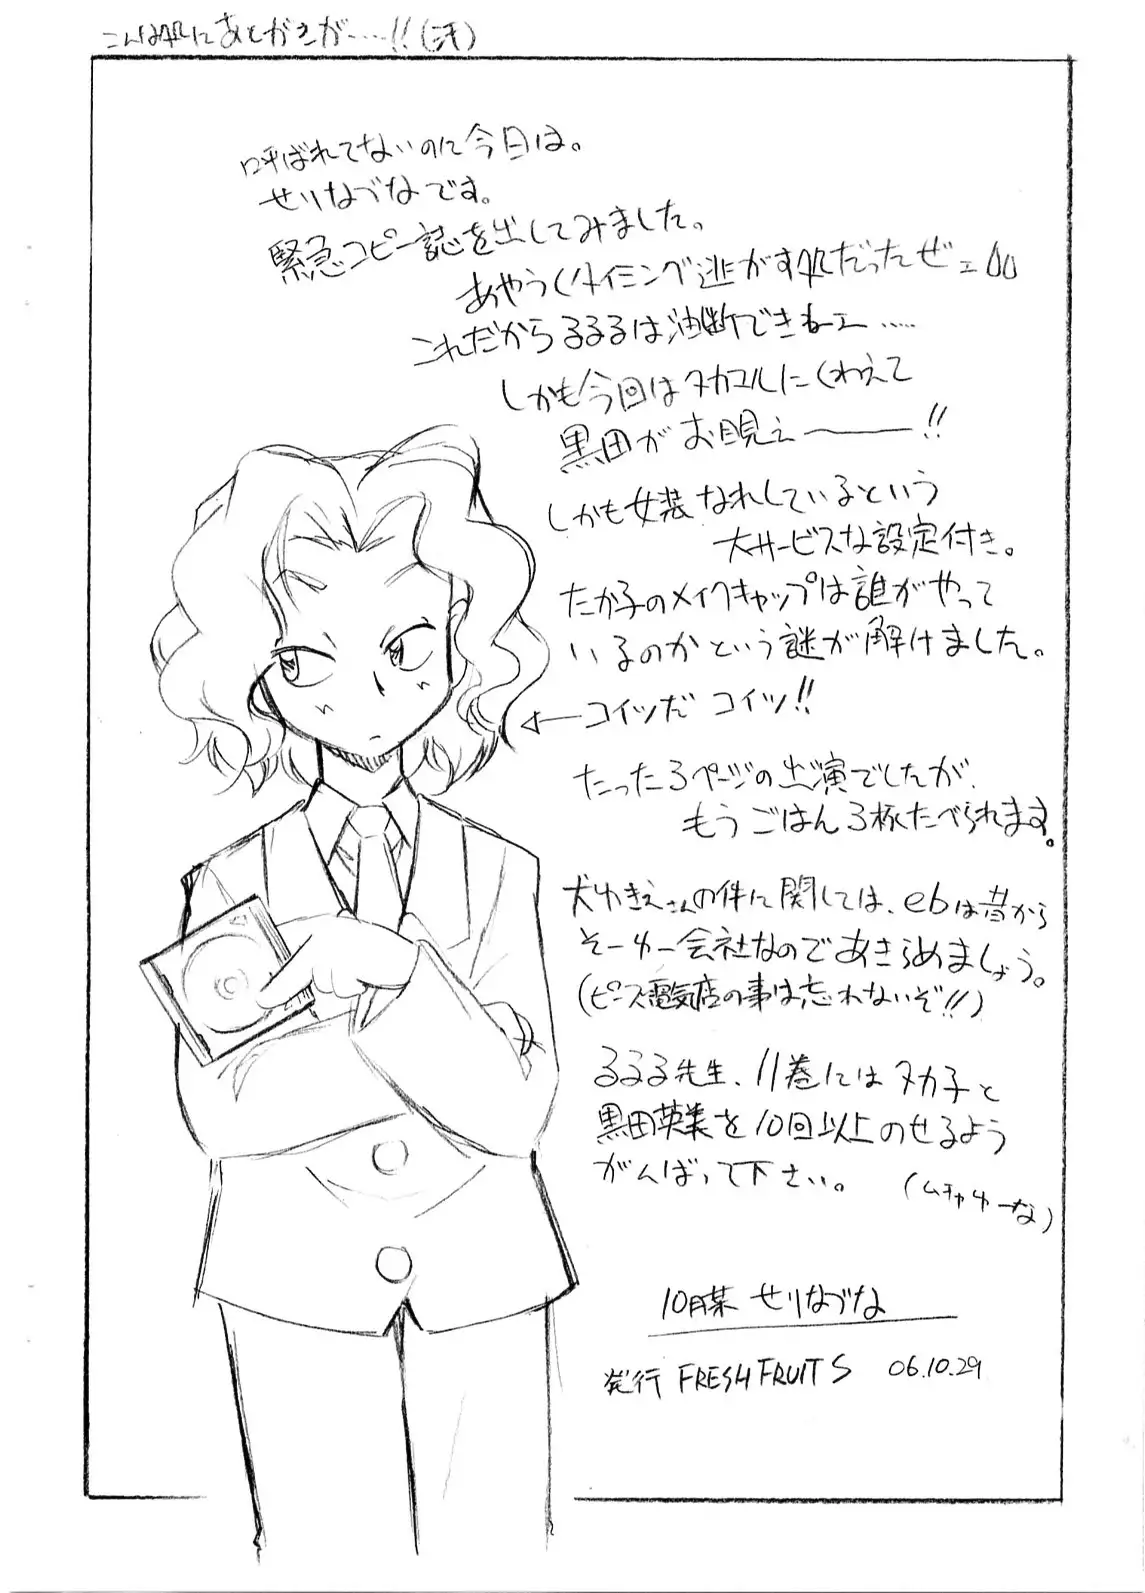 こんな処にあとがきが……!!(汗)
呼ばれてないのに今日は。
せりなづなです。
緊急コピー誌を出してみました。
あやうくタイミング逃がす処だったぜェ
これだからるるるは油断できねーェ……
しかも今回はタカコルにくわえて
黒田がお目見え———!!
しかも女装なれしているという
大サービスな設定付き。
たか子のメイクキャップは誰がやって
いるのかという謎が解けました。
←—コイツだ コイツ!!
たった3ページの出演でしたが、
もうごはん3杯たべられます。
犬ゆきえさんの件に関しては、ebは昔から
そーゆー会社なのであきらめましょう。
(ピース電気店の事は忘れないぞ!!)
るるる先生、11巻にはタカ子と
黒田英美を10回以上のせるよう
がんばって下さい。 (ムチャゆーな)
10月某 せりなづな
発行 FRESH FRUITS 06.10.29